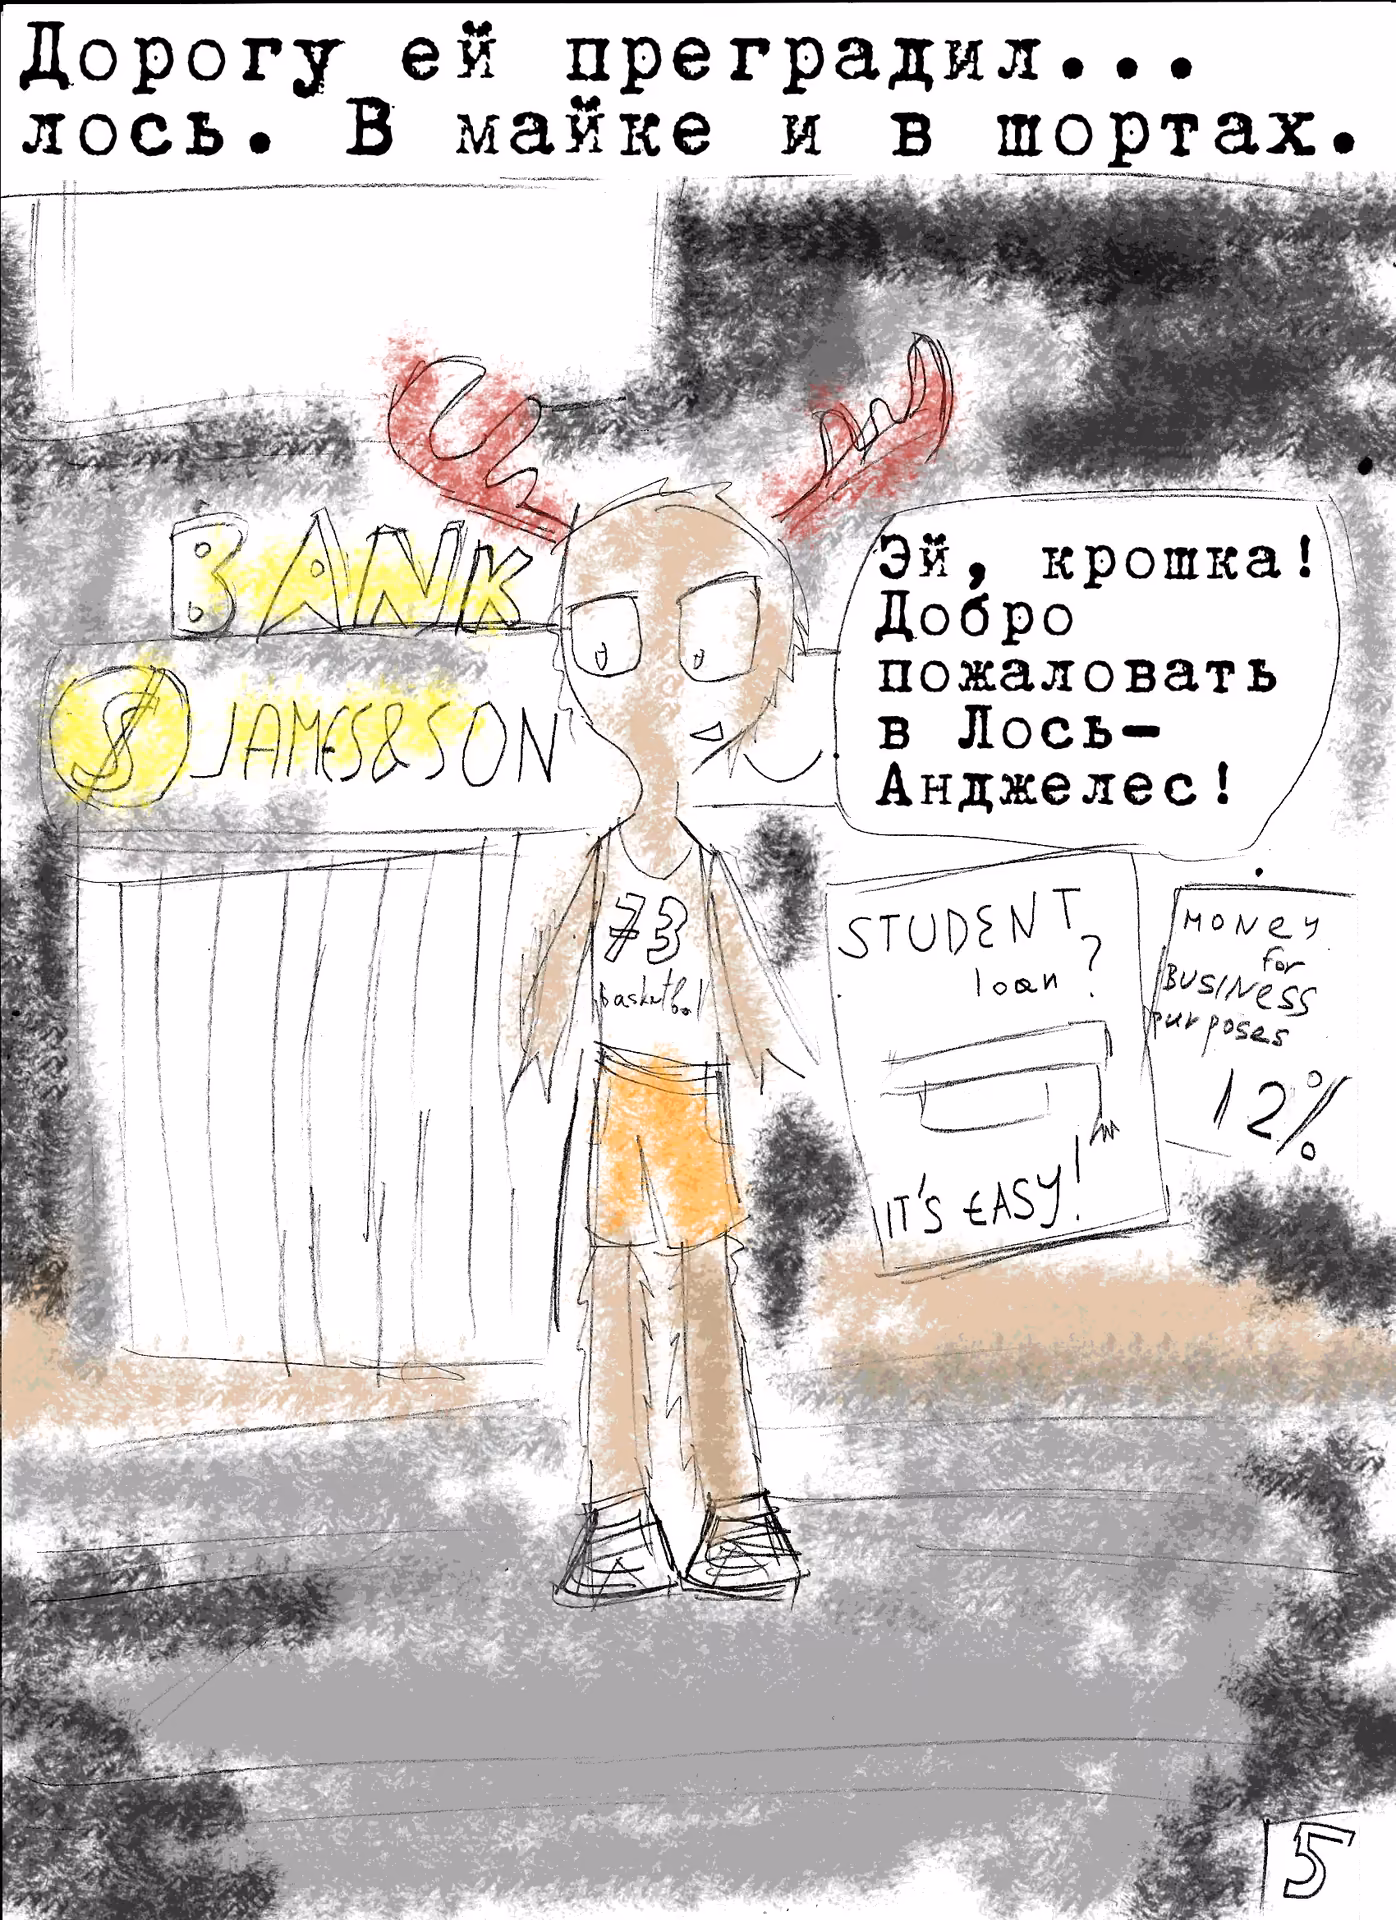 Дорогу ей преградил...
лось. В майке и в шортах.
BANK
$ JAMES&SON
Эй, крошка!
Добро
пожаловать
в Лось-
Анджелес!
73
basketbol
STUDENT
loan?
IT'S EASY!
MONEY
for
BUSINESS
purposes
12%
5